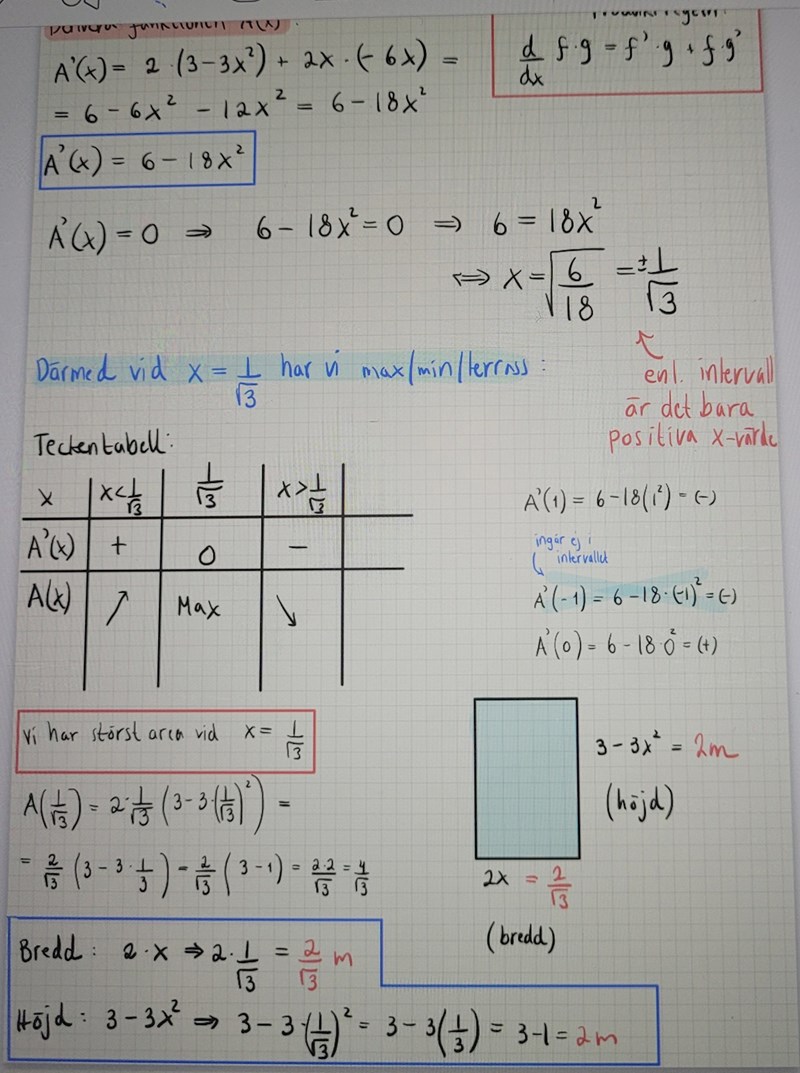 funktionen A(x):
A'(x) = 2 · (3-3x²) + 2x · (-6x) =
= 6 - 6x² - 12x² = 6 - 18x²
d/dx f·g = f'·g + f·g'
A'(x) = 6 - 18x²
A'(x) = 0 ⇒ 6 - 18x² = 0 ⇒ 6 = 18x²
⇔ x = √(6/18) = ± 1/√3
enl. intervall
är det bara
positiva x-värde
Därmed vid x = 1/√3 har vi max/min/terrass:
Teckentabell:
x | x < 1/√3 | 1/√3 | x > 1/√3
A'(x) | + | 0 | -
A(x) | ↗ | Max | ↘
A'(1) = 6 - 18(1²) = (-)
ingår ej i
intervallet
A'(-1) = 6 - 18·(-1)² = (-)
A'(0) = 6 - 18·0² = (+)
Vi har störst area vid x = 1/√3
A(1/√3) = 2·1/√3 (3 - 3·(1/√3)²) =
= 2/√3 (3 - 3·1/3) = 2/√3 (3 - 1) = 2·2/√3 = 4/√3
3 - 3x² = 2m
(höjd)
2x = 2/√3
(bredd)
Bredd: 2·x ⇒ 2·1/√3 = 2/√3 m
Höjd: 3 - 3x² ⇒ 3 - 3·(1/√3)² = 3 - 3(1/3) = 3-1 = 2m